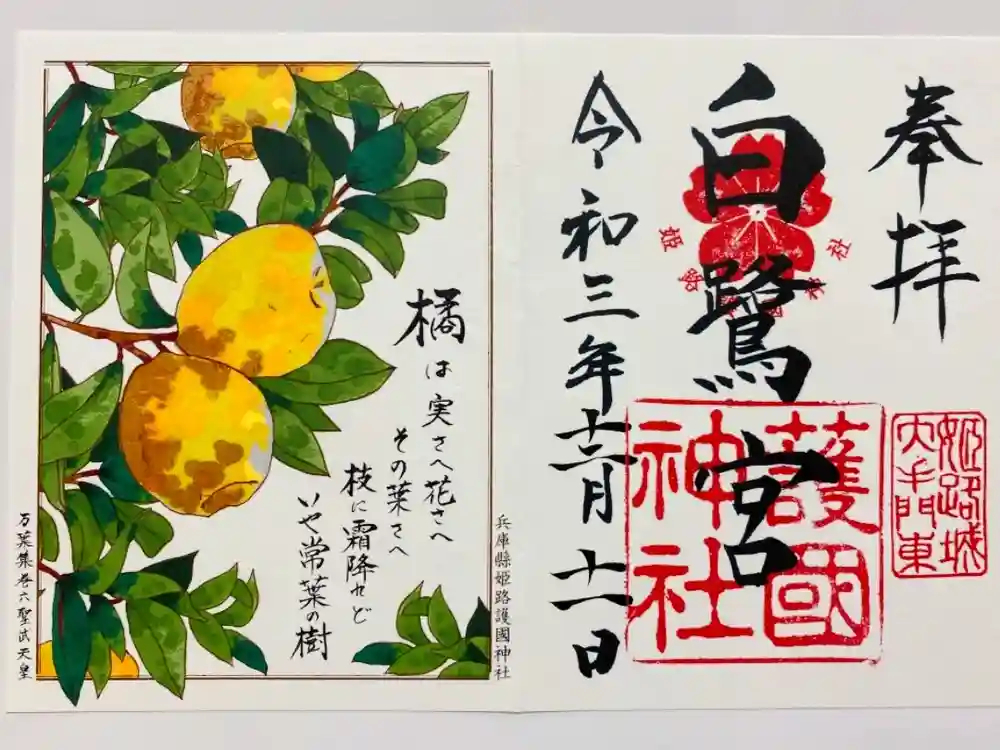 奉拝
姫路城
大手門東
白鷺宮
姫路護國神社
護國
神社
令和三年十二月十一日
兵庫縣姫路護國神社
橘は実さへ花さへ
その葉さへ
枝に霜降れど
いや常葉の樹
万葉集巻六聖武天皇